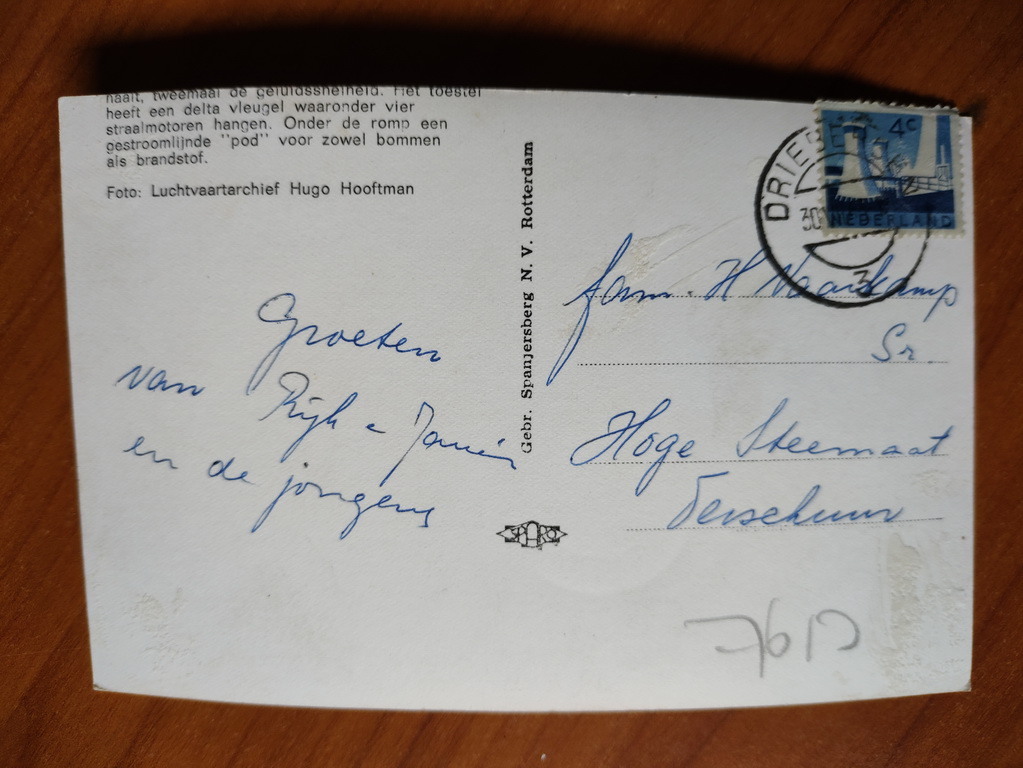 haalt, tweemaal de geluidssnelheid. Het toestel
heeft een delta vleugel waaronder vier
straalmotoren hangen. Onder de romp een
gestroomlijnde "pod" voor zowel bommen
als brandstof.
Foto: Luchtvaartarchief Hugo Hooftman
Groeten
van
en de jongens
Gebr. Spanjersberg N. V. Rotterdam
SPARO
4c
NEDERLAND
DRIEBE
30
3
fam. H
Sr.
Hoge Steemaat